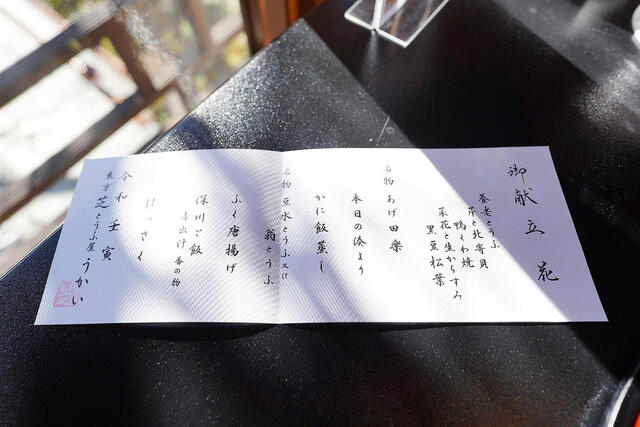 御献立 花
養老とうふ
芹と北寄貝
鴨くわ焼
菜花と生からすみ
黒豆松葉
名物 あげ田楽
本日の湊より
かに飯蒸し
名物 豆水とうふ 又は
翁とうふ
ふく唐揚げ
深川ご飯
赤出汁 香の物
はっさく
令和 壬寅
東京 芝 とうふ屋うかい